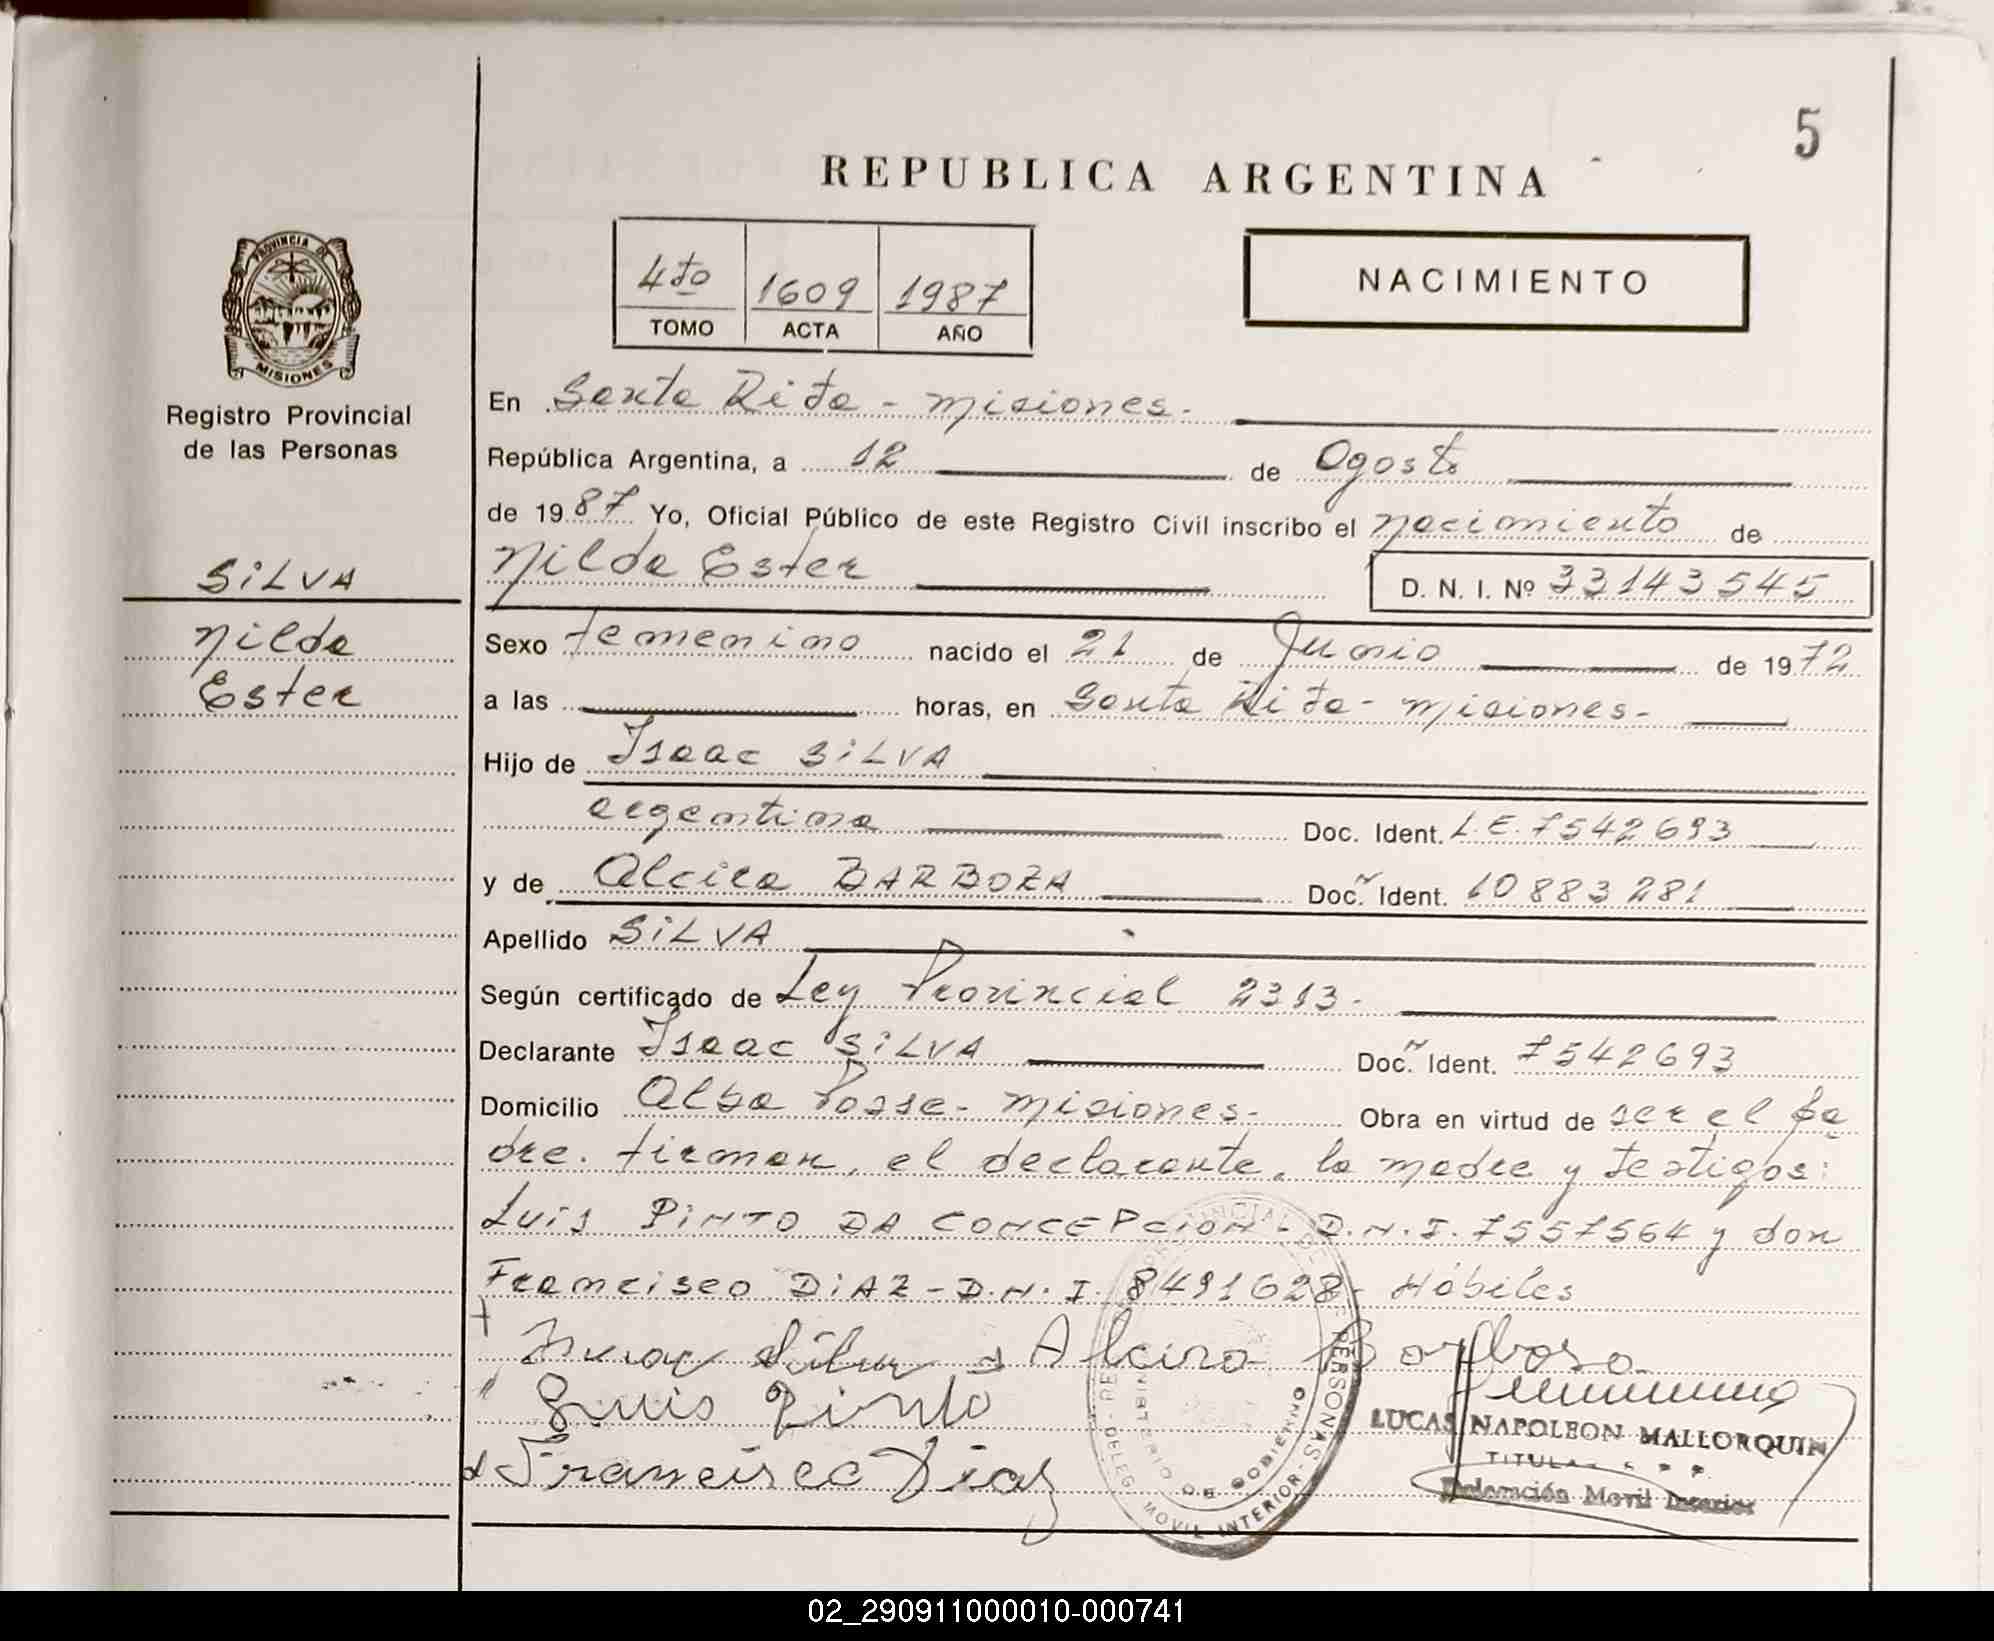 5
REPUBLICA ARGENTINA
PROVINCIA DE
MISIONES
Registro Provincial
de las Personas
4to 1609 1987
TOMO ACTA AÑO
NACIMIENTO
En Santa Rita - Misiones.-
República Argentina, a 12 de Agosto
de 1987 Yo, Oficial Público de este Registro Civil inscribo el nacimiento de
Nilda Ester D. N. I. Nº 33143545
SILVA
Nilda
Ester
Sexo femenino nacido el 21 de Junio de 1972
a las horas, en Santa Rita - Misiones-
Hijo de Isaac SILVA
argentina Doc. Ident. L.E. 7542693
y de Alcira BARBOZA Doc. Ident. 10883281
Apellido SILVA
Según certificado de Ley Provincial 2313.-
Declarante Isaac SILVA Doc. Ident. 7542693
Domicilio Alba Posse - Misiones.- Obra en virtud de ser el pa
dre. firman, el declarante, la madre y testigos:
Luis PINTO DA CONCEPCION - D.N.I. 7557564 y don
Francisco DIAZ - D.N.I. 8491628 - Hábiles
Isaac Silva Alcira Barboza
Luis Pinto
Francisco Diaz
MINISTERIO DE GOBIERNO
DELEG. MOVIL INTERIOR
LUCAS NAPOLEON MALLORQUIN
TITULAR
Delegación Movil Interior
02_290911000010-000741